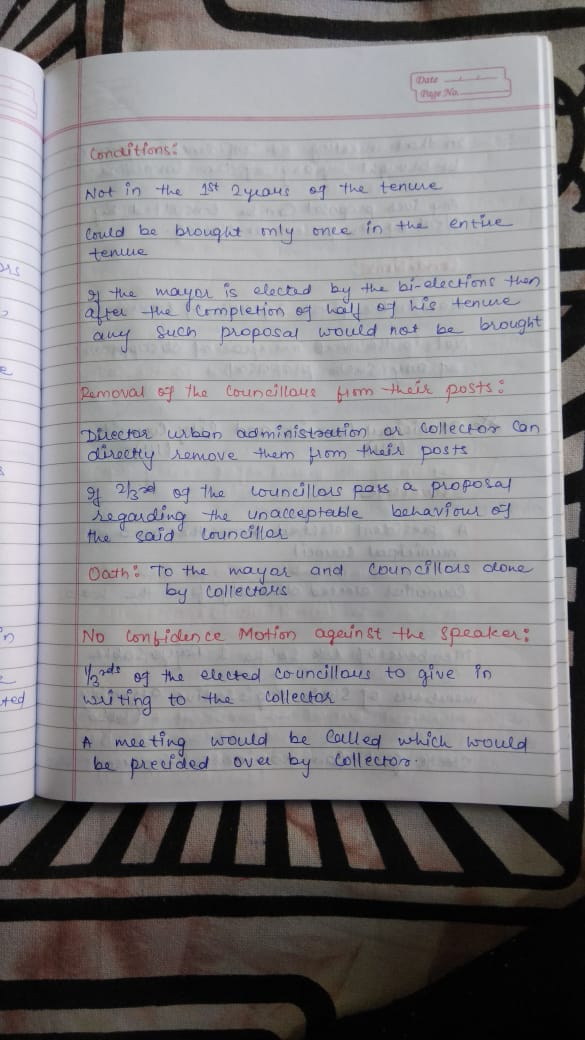 Date
Page No.
Conditions:
Not in the 1st 2 years of the tenure
Could be brought only once in the entire
tenure
If the mayor is elected by the bi-elections then
after the completion of half of his tenure
any such proposal would not be brought
Removal of the Councillors from their posts:
Director urban administration or collector can
directly remove them from their posts
If 2/3rd of the councillors pass a proposal
regarding the unacceptable behaviour of
the said councillor
Oath: To the mayor and councillors done
by collectors
No Confidence Motion against the Speaker:
1/3rds of the elected councillors to give in
writing to the collector
A meeting would be called which would
be precided over by collector.
ors
e
s
in
ted